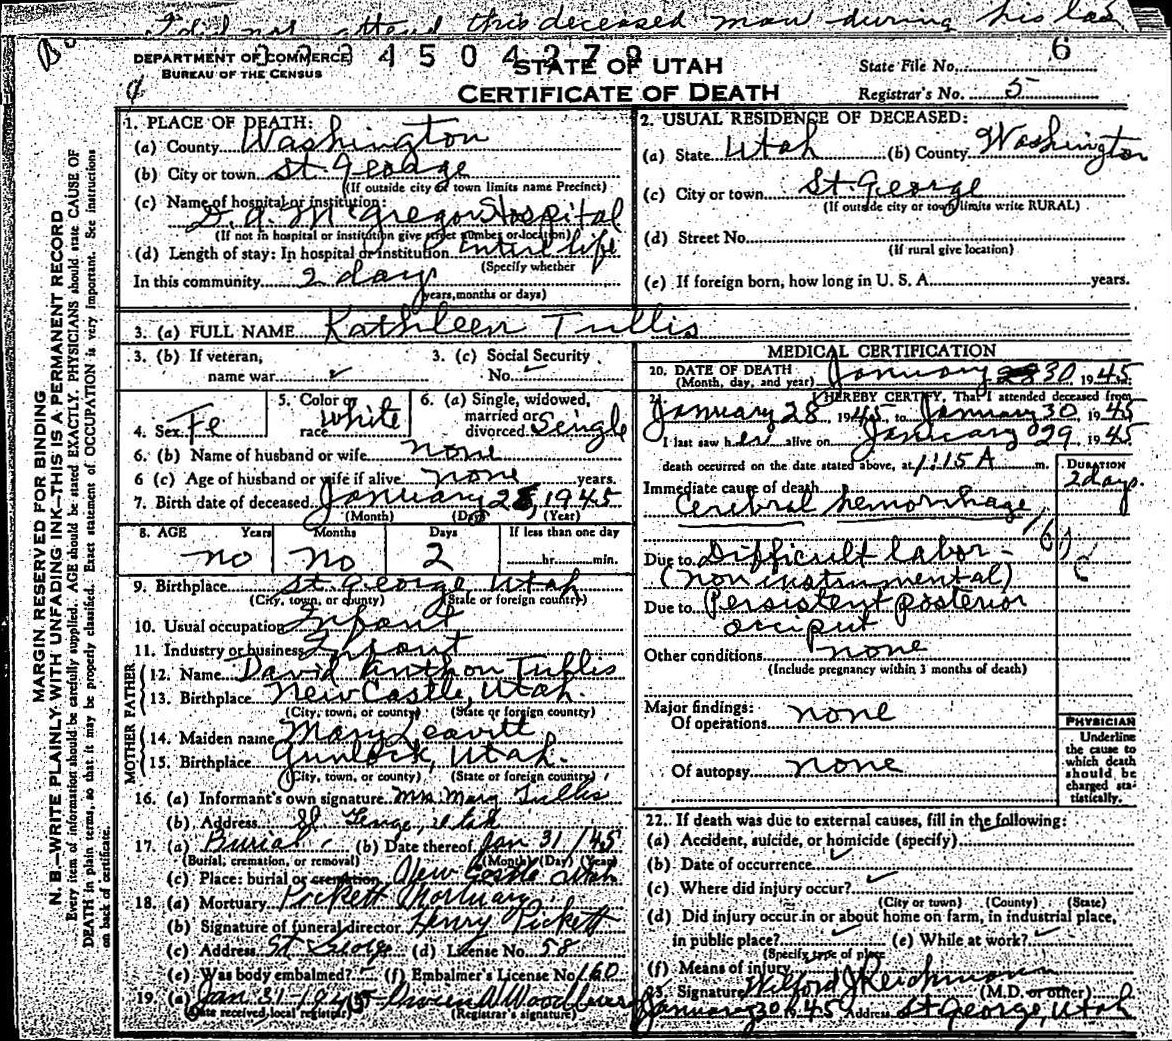 I did not attend this deceased man during his las
DEPARTMENT OF COMMERCE
BUREAU OF THE CENSUS
4 5 0 4 2 7 9
STATE OF UTAH
CERTIFICATE OF DEATH
State File No. 6
Registrar's No. 5
MARGIN RESERVED FOR BINDING
N. B.—WRITE PLAINLY WITH UNFADING INK—THIS IS A PERMANENT RECORD
Every item of information should be carefully supplied. AGE should be stated EXACTLY. PHYSICIANS should state CAUSE OF
DEATH in plain terms, so that it may be properly classified. Exact statement of OCCUPATION is very important. See instructions
on back of certificate.
1. PLACE OF DEATH:
(a) County Washington
(b) City or town St. George
(If outside city or town limits name Precinct)
(c) Name of hospital or institution:
D. A. McGregor Hospital
(If not in hospital or institution give street number or location)
(d) Length of stay: In hospital or institution entire life
(Specify whether
In this community 2 days
years, months or days)
2. USUAL RESIDENCE OF DECEASED:
(a) State Utah (b) County Washington
(c) City or town St. George
(If outside city or town limits write RURAL)
(d) Street No.
(If rural give location)
(e) If foreign born, how long in U. S. A. years.
3. (a) FULL NAME Kathleen Tullis
3. (b) If veteran, name war
3. (c) Social Security No.
4. Sex Fe
5. Color or race White
6. (a) Single, widowed, married or divorced Single
6. (b) Name of husband or wife none
6 (c) Age of husband or wife if alive none years.
7. Birth date of deceased January 28, 1945
(Month) (Day) (Year)
8. AGE Years Months Days If less than one day
no no 2 hr. min.
9. Birthplace St. George, Utah
(City, town, or county) (State or foreign country)
10. Usual occupation Infant
11. Industry or business Infant
FATHER
12. Name David Anthon Tullis
13. Birthplace New Castle, Utah.
(City, town, or county) (State or foreign country)
MOTHER
14. Maiden name Mary Leavitt
15. Birthplace Gunlock, Utah.
(City, town, or county) (State or foreign country)
16. (a) Informant's own signature Mrs. Mary Tullis
(b) Address St George, Utah
17. (a) Burial (b) Date thereof Jan 31 / 45
(Burial, cremation, or removal) (Month) (Day) (Year)
(c) Place: burial or cremation New Castle Utah
18. (a) Mortuary Pickett Mortuary
(b) Signature of funeral director Henry Pickett
(c) Address St George (d) License No. 58
(e) Was body embalmed? (f) Embalmer's License No. 160
19. (a) Jan 31 1945
(Date received, local registrar) (Registrar's signature)
MEDICAL CERTIFICATION
20. DATE OF DEATH January 30, 1945
(Month, day, and year)
21. I HEREBY CERTIFY, That I attended deceased from
January 28 1945 to January 30, 1945
I last saw her alive on January 29, 1945
death occurred on the date stated above, at 1:15 A m.
DURATION
Immediate cause of death 2 days.
Cerebral hemorrhage
Due to Difficult labor-
(non instrumental)
Due to Persistent posterior
occiput
Other conditions none
(Include pregnancy within 3 months of death)
Major findings:
Of operations none
Of autopsy none
PHYSICIAN
Underline
the cause to
which death
should be
charged sta-
tistically.
22. If death was due to external causes, fill in the following:
(a) Accident, suicide, or homicide (specify)
(b) Date of occurrence
(c) Where did injury occur?
(City or town) (County) (State)
(d) Did injury occur in or about home on farm, in industrial place,
in public place? (e) While at work?
(Specify type of place)
(f) Means of injury
23. Signature Wilford J Reichmann (M.D. or other)
January 30, 45 Address St George, Utah